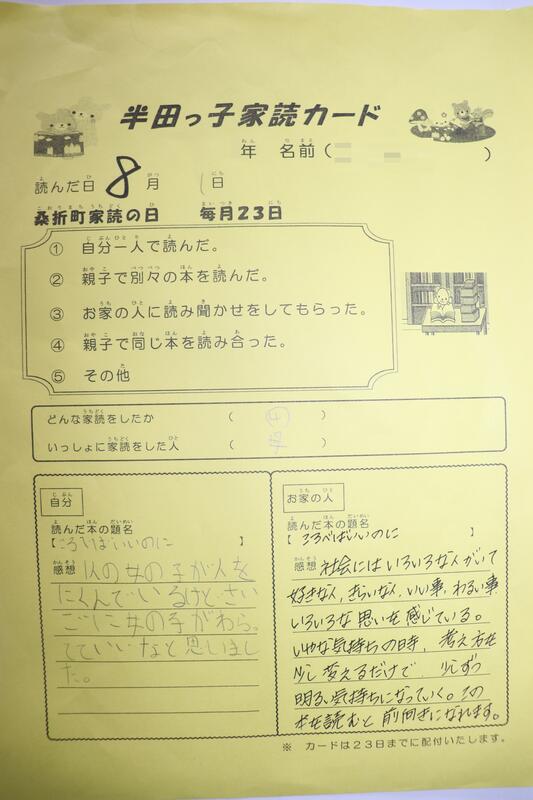 半田っ子家読カード
年 名前( )
読んだ日 8月 1日
桑折町家読の日 毎月23日
① 自分一人で読んだ。
② 親子で別々の本を読んだ。
③ お家の人に読み聞かせをしてもらった。
④ 親子で同じ本を読み合った。
⑤ その他
どんな家読をしたか ( ④ )
いっしょに家読をした人 ( 母 )
自分
読んだ本の題名
【ころべばいいのに 】
感想 1人の女の子が人を
にくんでいるけどさい
ごに女の子がわらっ
てていいなと思いまし
た。
お家の人
読んだ本の題名
【 ころべばいいのに 】
感想 社会にはいろいろな人がいて
好きな人、きらいな人、いい事、わるい事
いろいろな思いを感じている。
いやな気持ちの時、考え方を
少し変えるだけで、少しずつ
明るい気持ちになっていく。この
本を読むと前向きになれます。
※ カードは23日までに配付いたします。